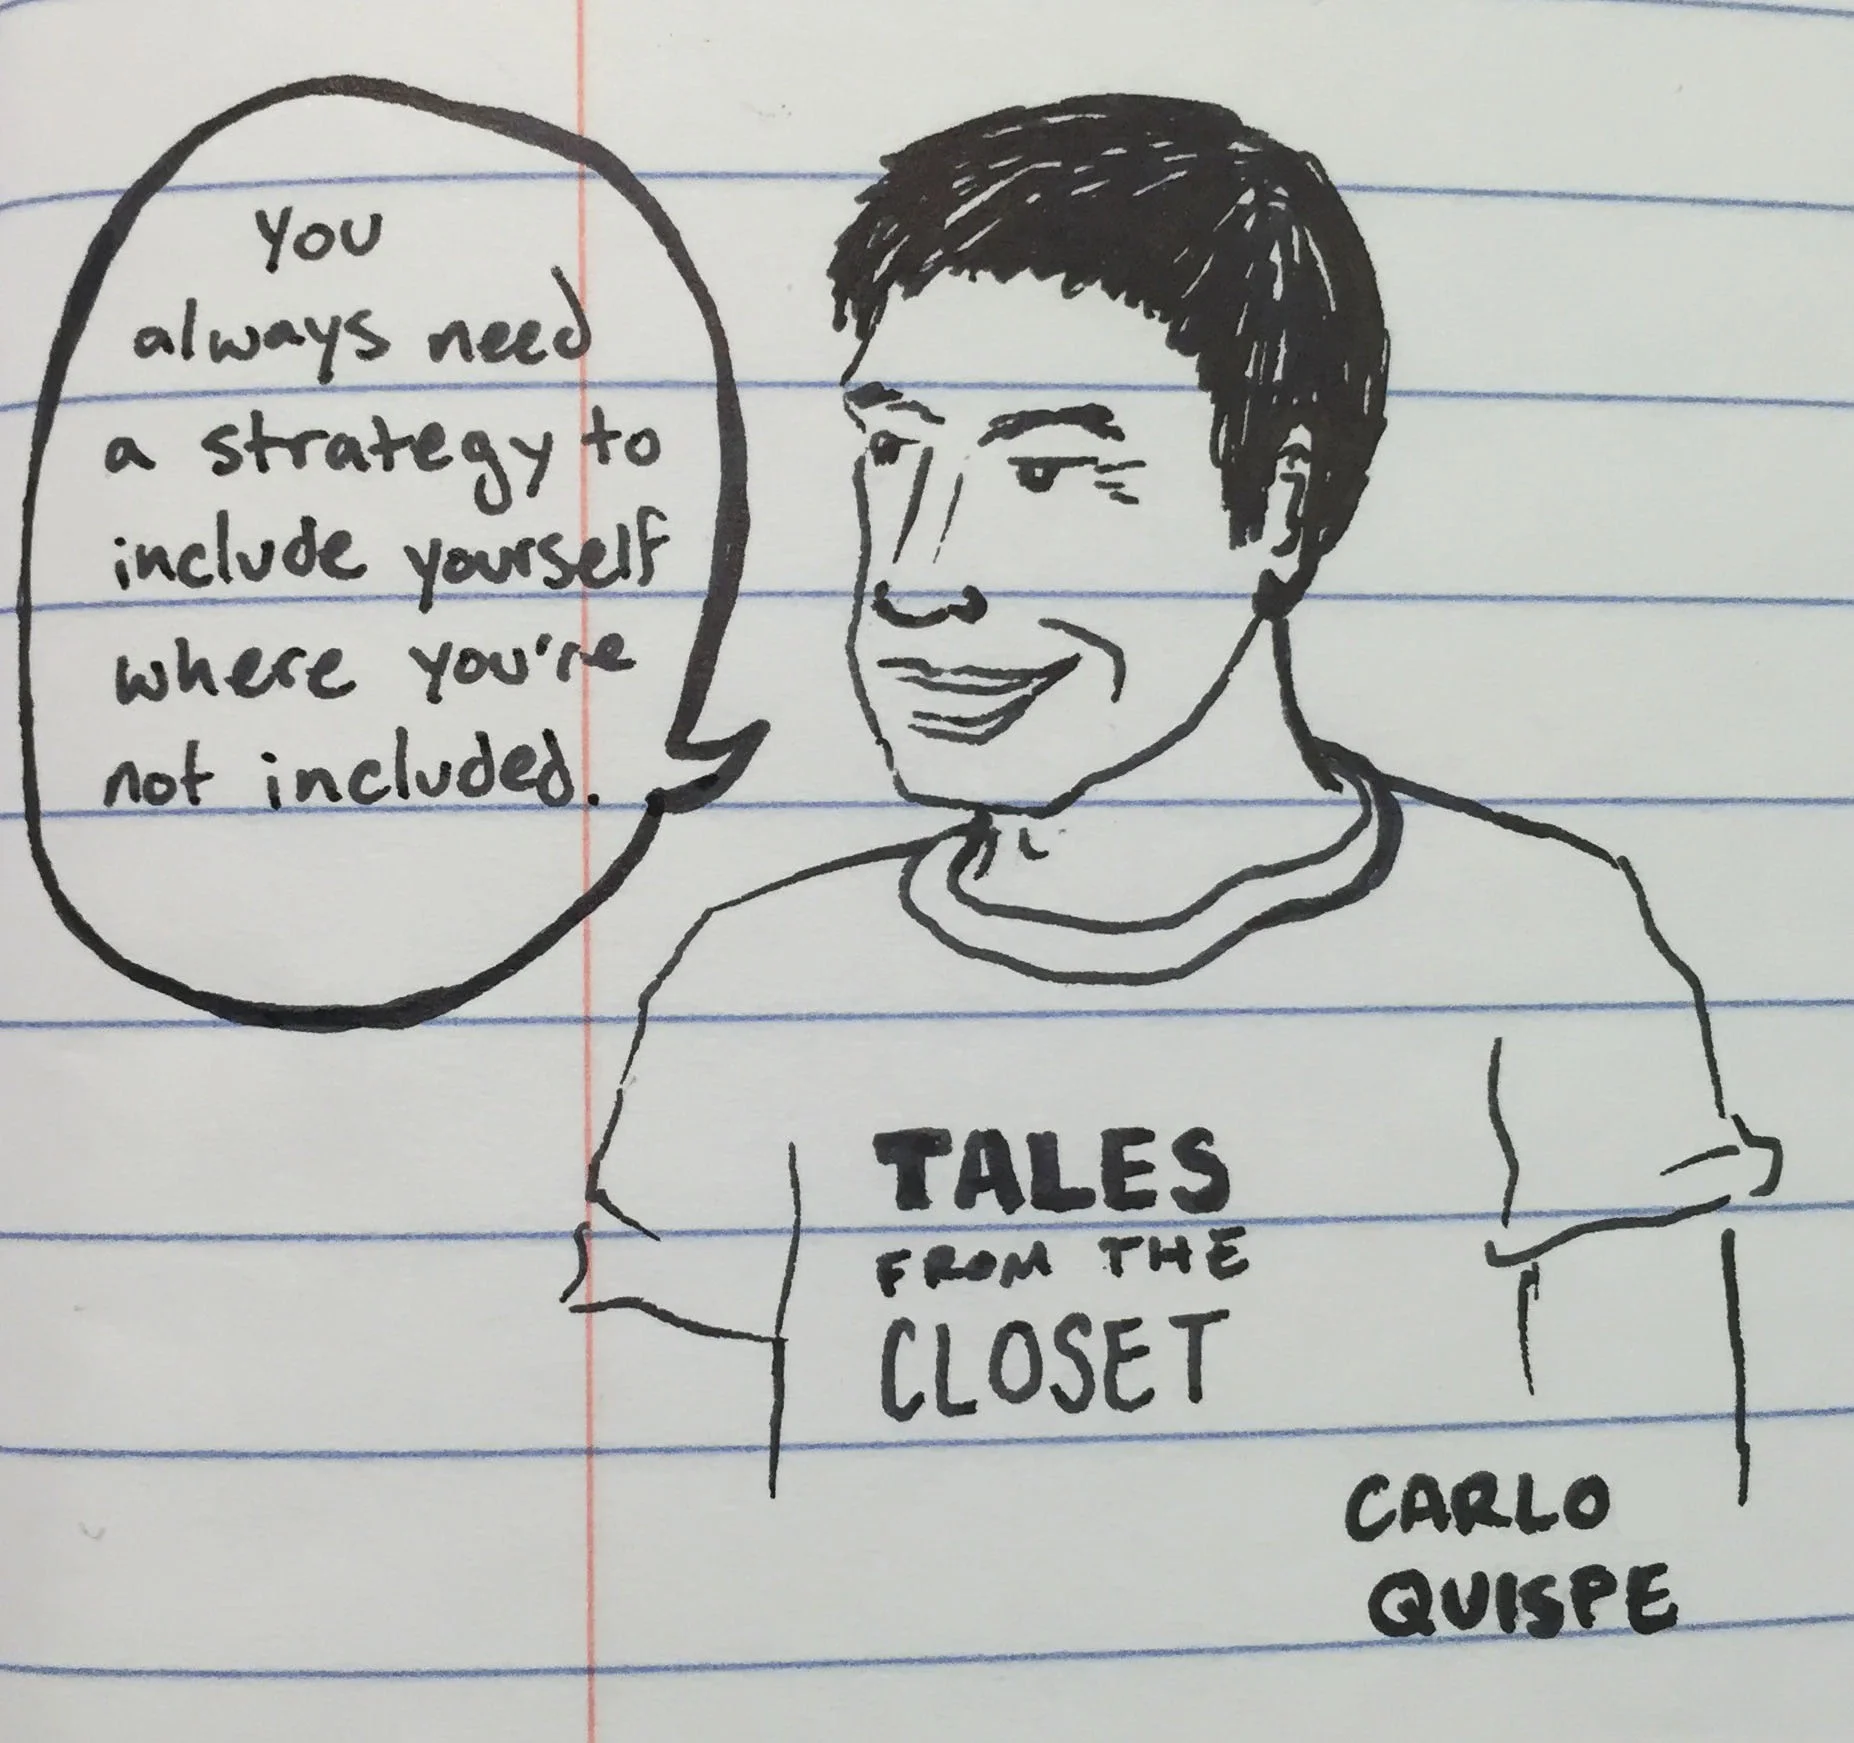 You
always need
a strategy to
include yourself
where you're
not included.
TALES
FROM THE
CLOSET
CARLO
QUISPE